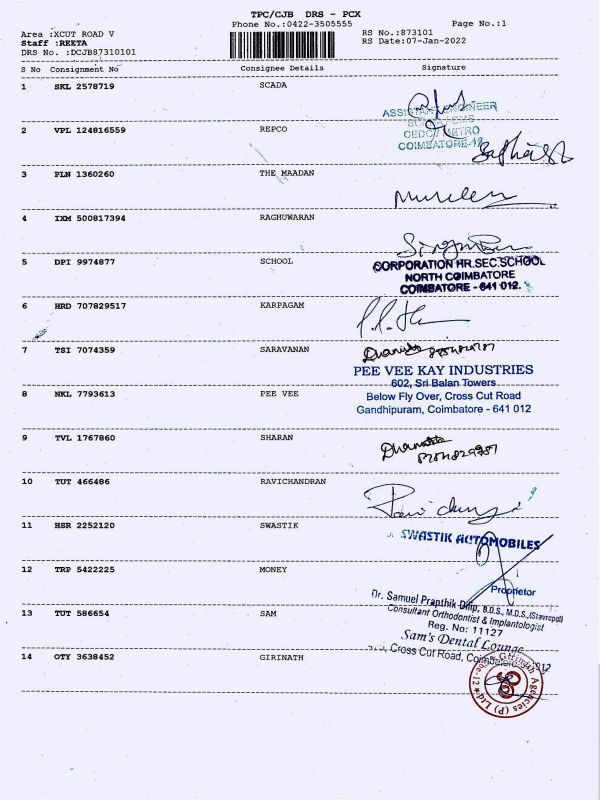 TPC/CJB DRS - PCX
Phone No.:0422-3505555 Page No.:1
Area :XCUT ROAD V RS No.:873101
Staff :REETA RS Date:07-Jan-2022
DRS No. :DCJB87310101
S No Consignment No Consignee Details Signature
1 SKL 2578719 SCADA
ASSISTANT ENGINEER
CEDC / METRO
COIMBATORE-12
2 VPL 124816559 REPCO
3 PLN 1360260 THE MAADAN
4 IXM 500817394 RAGHUWARAN
5 DPI 9974877 SCHOOL
CORPORATION HR.SEC.SCHOOL
NORTH COIMBATORE
COIMBATORE - 641 012.
6 HRD 707829517 KARPAGAM
7 TSI 7074359 SARAVANAN
PEE VEE KAY INDUSTRIES
602, Sri Balan Towers
8 NKL 7793613 PEE VEE
Below Fly Over, Cross Cut Road
Gandhipuram, Coimbatore - 641 012
9 TVL 1767860 SHARAN
10 TUT 466486 RAVICHANDRAN
11 HSR 2252120 SWASTIK
SWASTIK AUTOMOBILES
Proprietor
12 TRP 5422225 MONEY
Dr. Samuel Pranthik Dilip, B.D.S., M.D.S.,(Stavropol)
Consultant Orthodontist & Implantologist
13 TUT 586654 SAM
Reg. No: 11127
Sam's Dental Lounge
Cross Cut Road,
14 OTY 3638452 GIRINATH
Agencies (P) Ltd